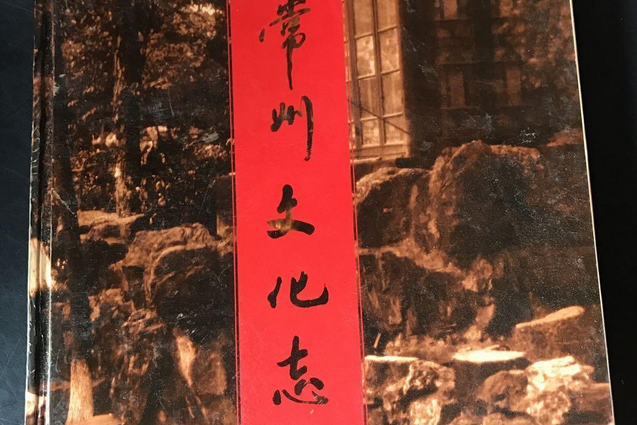 常州文化志